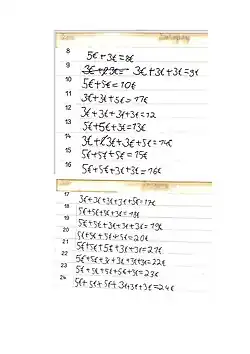 8 5€+3€=8€
9 3€+3€+3€=9€
10 5€+5€=10€
11 3€+3€+5€=11€
12 3€+3€+3€+3€=12
13 5€+5€+3€=13€
14 3€+3€+3€+5€=14€
15 5€+5€+5€=15€
16 5€+5€+3€+3€=16€
17 3€+3€+3€+3€+5€=17€
18 5€+5€+5€+3€=18€
19 5€+5€+3€+3€+3€=19€
20 5€+5€+5€+5€=20€
21 5€+5€+5€+3€+3€=21€
22 5€+5€+3€+3€+3€+3€=22€
23 5€+5€+5€+5€+3€=23€
24 5€+5€+5€+3€+3€+3€=24€